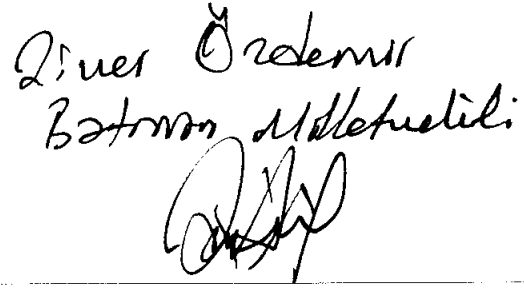 Ziver Özdemir
Batman Milletvekili